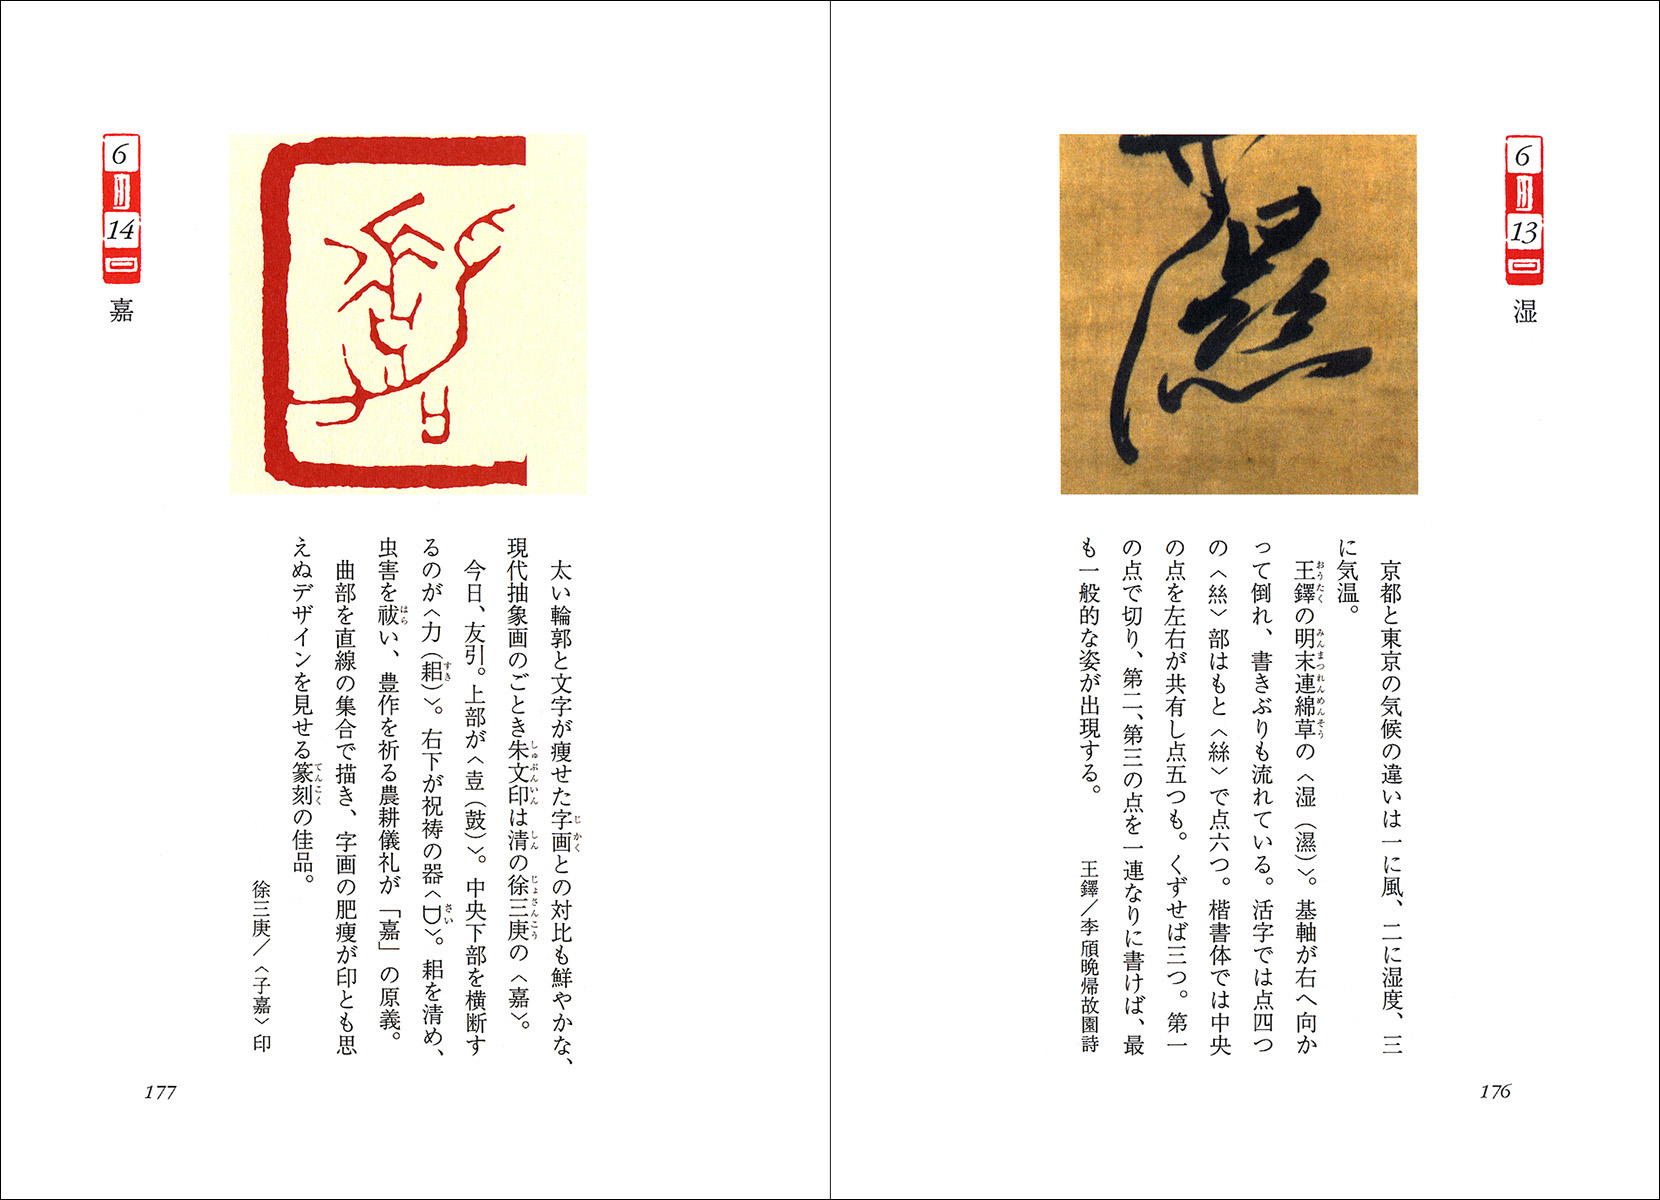 6
月
13
日
湿
京都と東京の気候の違いは一に風、二に湿度、三
に気温。
王鐸の明末連綿草の〈湿（濕）〉。基軸が右へ向か
って倒れ、書きぶりも流れている。活字では点四つ
の〈絲〉部はもと〈絲〉で点六つ。楷書体では中央
の点を左右が共有し点五つも。くずせば三つ。第一
の点で切り、第二、第三の点を一連なりに書けば、最
も一般的な姿が出現する。
王鐸／李頎晩帰故園詩
176
6
月
14
日
嘉
太い輪郭と文字が痩せた字画との対比も鮮やかな、
現代抽象画のごとき朱文印は清の徐三庚の〈嘉〉。
今日、友引。上部が〈壴（鼓）〉。中央下部を横断す
るのが〈力（耜）〉。右下が祝祷の器〈𠙵〉。耜を清め、
虫害を祓い、豊作を祈る農耕儀礼が「嘉」の原義。
曲部を直線の集合で描き、字画の肥痩が印とも思
えぬデザインを見せる篆刻の佳品。
徐三庚／〈子嘉〉印
177